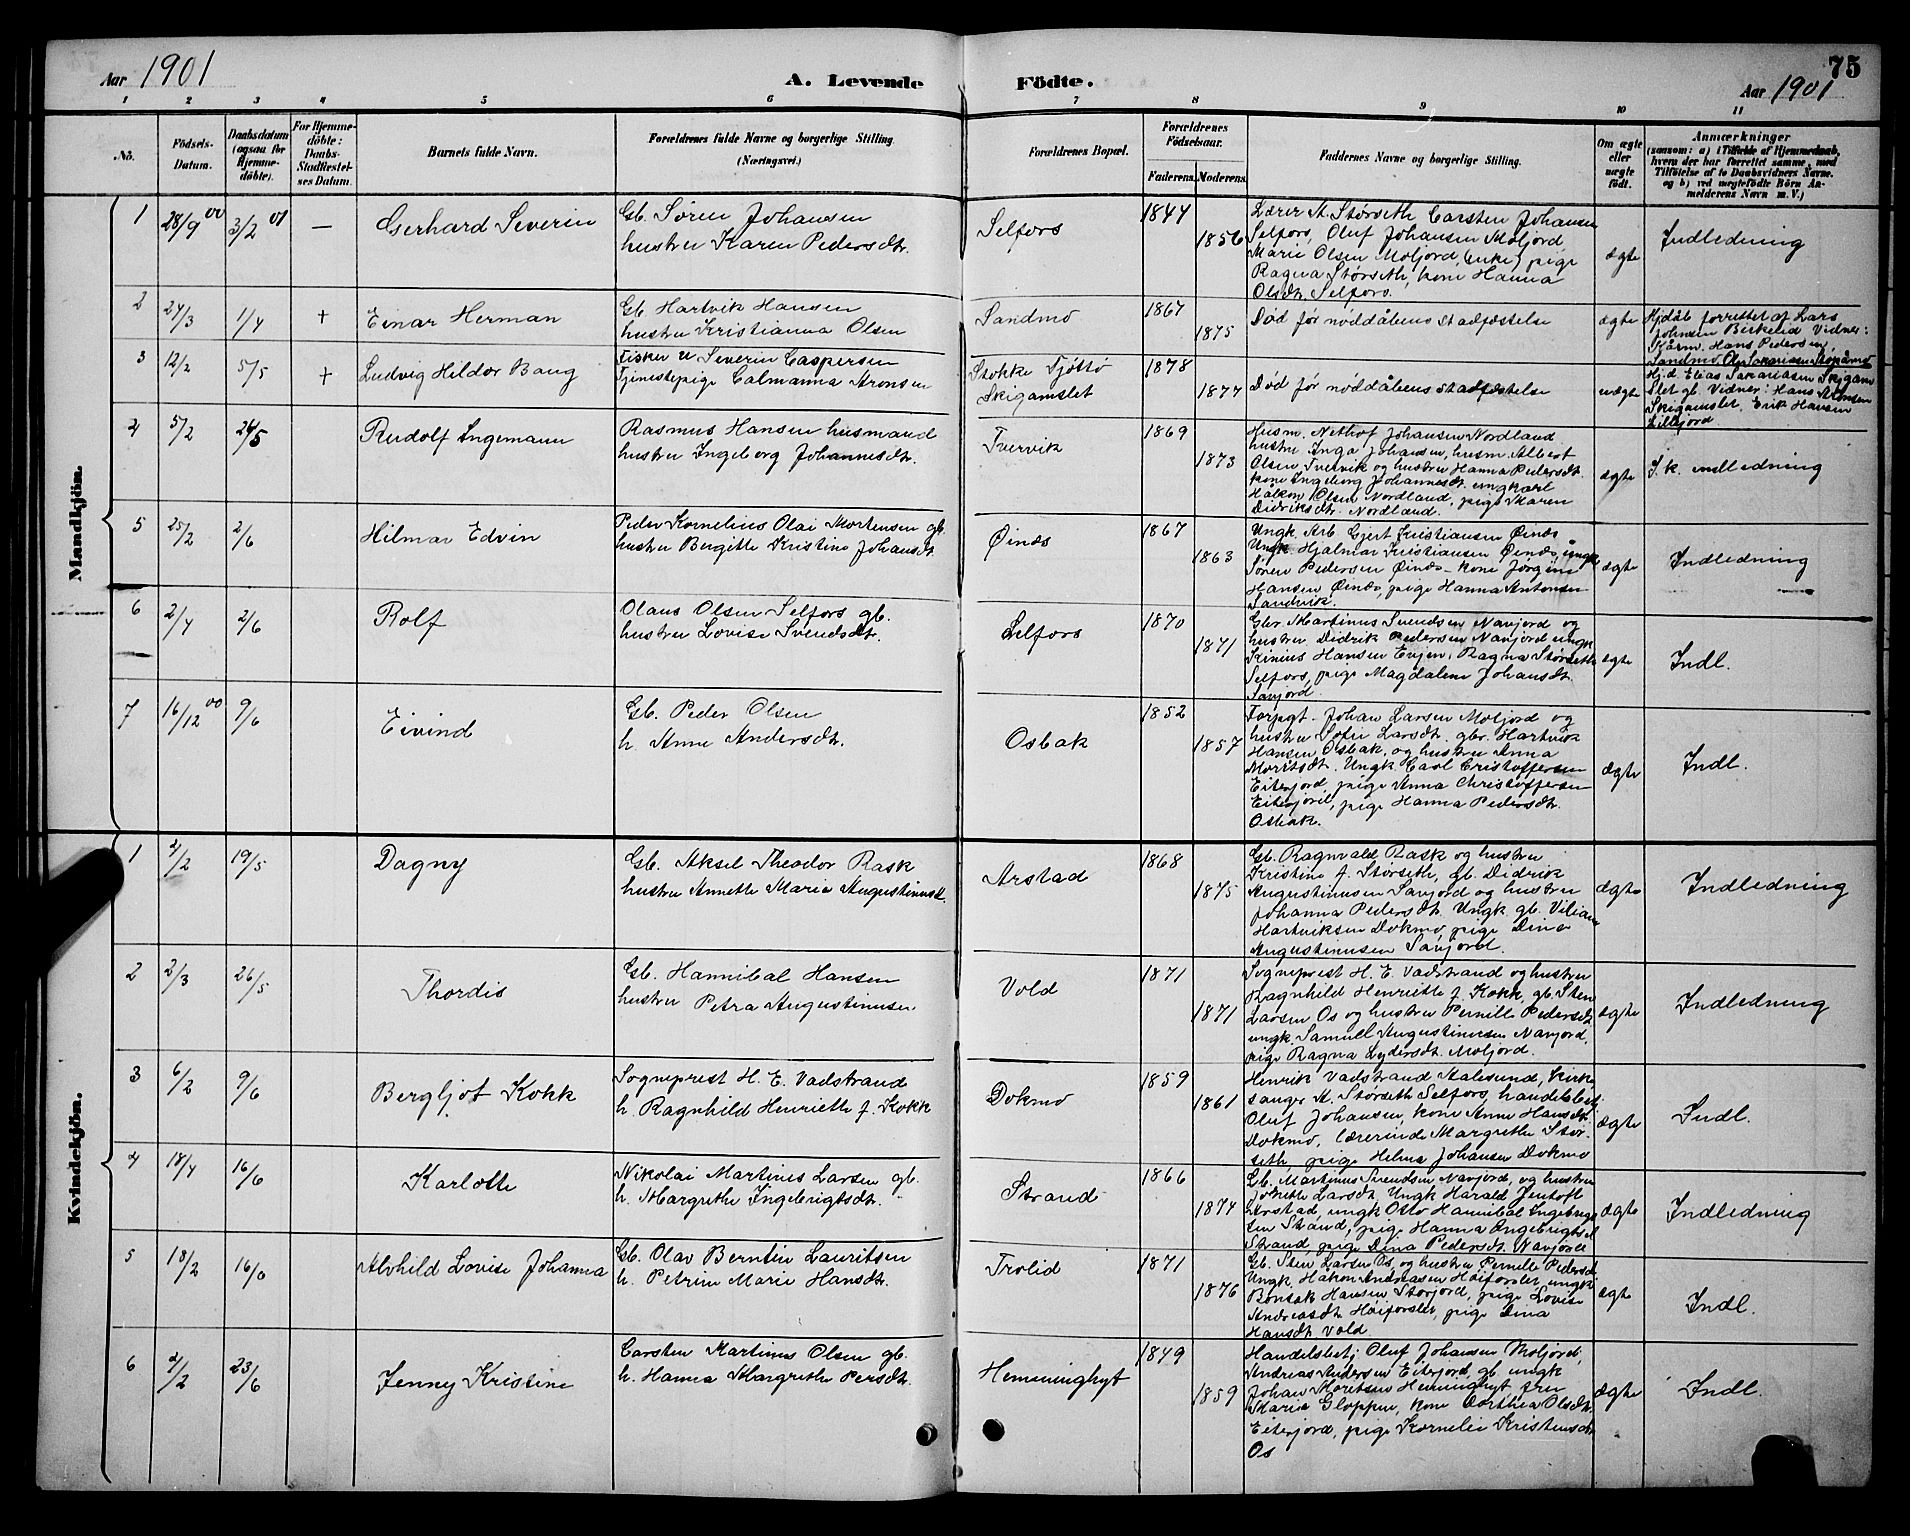 Aar 1901
A. Levende Födte.
75
Aar 1901
1 2 3 4 5 6 7 8 9 10 11
No.
Födsels-Datum.
Daabsdatum (ogsaa for Hjemme-döbte).
For Hjemme-döbte: Daabs-Stadfæstel-ses Datum.
Barnets fulde Navn.
Forældrenes fulde Navne og borgerlige Stilling. (Næringsvei.)
Forældrenes Bopæl.
Forældrenes Födselsaar.
Faderens. Moderens.
Faddernes Navne og borgerlige Stilling.
Om ægte eller uægte födt.
Anmærkninger
(saasom: a) i Tilfælde af Hjemmedaab,
hvem der har forrettet samme, med
Tilföielse af to Daabsvidners Navne.
og b) ved uægtefödte Börn An-
melderens Navn m. V.)
Mandkjön.
1 28/9 00 3/2 01 — Gerhard Severin
Gb. Søren Johansen
hustru Karen Pedersdtr.
Selfors 1844 1856
Lærer A. Størseth, Carsten Johansen
Selfors, Oluf Johansen Moljord,
Marie Olsen Moljord, (enke) pige
Ragna Størseth, kone Hanna
Olsdtr. Selfors.
ægte Indledning
2 24/3 1/4 + Einar Herman
Gb. Hartvik Hansen
hustru Kristianna Olsen
Sandmo 1867 1875
Død før nøddåbens stadfæstelse
ægte
Hjdåb forrettet af Lars
Johnsen Birkelid Vidner:
Kårm. Hans Pedersen
Sandmo, Ole Sakariasen
3 12/2 5/5 + Ludvig Hildor Baug
Fisker u. Severin Caspersen
Tjenestepige Calmanna Aronsen
Stokke Tjøttø
Skigamslet 1878 1877
Død før nøddåbens stadfæstelse
uægte
Hj.d. Elias Sakariasen Skigam
slet gb. Vidner: Hans Aronsen
Skigamslet, Erik Hansen
Lillejord
4 5/2 24/5 Rudolf Ingemann
Rasmus Hansen husmand
hustru Ingeborg Johannesdtr.
Tvervik 1869 1873
Husm. Nethof Johansen Nordland
hustru Inga Johansen, husm. Albert
Olsen Tvervik og hustru Hanna Pedersdtr.
kone Ingeborg Johannesdtr. ungkarl
Håkon Olsen Nordland, pige Maren
Didriksdtr. Nordland.
ægte S.k. indledning
5 25/2 2/6 Hilmar Edvin
Peder Kornelius Olai Mortensen gb.
hustru Bergitte Kristine Johansdtr.
Øinæs 1867 1863
Ungk. Arb. Gjert Kristiansen Øinæs
Ungk. Hjalmar Kristiansen Øinæs, ungk
Søren Pedersen Øinæs - kone Jørgine
Hansen Øinæs, pige Hanna Antonsen
Sandvik.
ægte Indledning
6 2/4 2/6 Rolf
Olaus Olsen Selfors gb.
hustru Lovise Svendsdtr.
Selfors 1870 1871
Gbr. Martinus Svendsen Navjord og
hustru Didrik Pedersen Navjord ungk
Kinius Hansen Evjen, Ragna Størseth
Selfors, pige Magdalene Johansdtr.
Savjord.
ægte Indl.
7 16/12 00 9/6 Eivind
Gb. Peder Olsen
h. Anne Andersdtr.
Osbak 1852 1857
Forpgt. Johan Larsen Moljord og
hustru Sofie Larsdtr. gbr. Hartvik
Hansen Osbak, og hustru Anna
Moritsdtr. Ungk. Carl Cristoffersen
Eiterjord, pige Anna Christoffersen
Eiterjord, pige Hanna Pedersdtr.
Osbak.
ægte Indl.
Kvindekjön.
1 2/2 19/5 Dagny
Gb. Aksel Theodor Rask
hustru Annette Marie Augustinusd.
Arstad 1868 1875
Gb. Ragnvald Rask og hustru
Kristine f. Størseth, gb. Didrik
Augustinusen Savjord og hustru
Johanna Pedersdtr. Ungk. gb. Vilian
Hartviksen Dokmo, pige Dina
Augustinusen Savjord.
ægte Indledning
2 2/3 26/5 Thordis
Gb. Hannibal Hansen
hustru Petra Augustinusen
Vold 1871 1871
Sogneprest H. E. Vadstrand og hustru
Ragnhild Henriette f. Kokk, gb. Sten
Larsen Os og hustru Pernille Pedersdt.
ungk. Samuel Augustinusen Navjord,
pige Ragna Lydersdt. Moljord.
ægte Indledning
3 6/2 9/6 Bergljot Kokk
Sogneprest H. E. Vadstrand
h. Ragnhild Henriette f. Kokk
Dokmo 1859 1861
Henrik Vadstrand Aalesund, kirke
sanger A. Størseth Selfors, handelsbetj.
Oluf Johansen, kone Anne Hansdt.
Dokmo, lærerinde Margrethe Stør-
seth, pige Helma Johansen Dokmo
ægte Indl.
4 18/4 16/6 Karlotte
Nikolai Martinus Larsen gb.
h. Margrethe Ingebrigtsdt.
Strand 1866 1874
Gb. Martinus Svendsen Navjord, og hustru
Larsdt. Ungk. Harald Jentoft
Arstad, ungk. Otto Hannibal Ingebrigt
sen Strand, pige Hanna Ingebrigtsd
Strand, pige Dina Pedersdt. Navjord
ægte Indledning
5 18/2 16/6 Alvhild Lovise Johanna
Gb. Olav Berntin Lauritsen
h. Petrine Marie Hansdt.
Trolid 1871 1876
Gb. Sten Larsen Os, og hustru Pernille Pedersdt
Ungk. Håkon Andreasen Høiforslet, ungk.
Bonsak Hansen Storjord, pige Lovise
Andreasdt. Høiforslet, pige Dina
Hansdt. Vold.
ægte Indl.
6 2/2 23/6 Jenny Kristine
Carsten Martinus Olsen gb.
h. Hanna Margrethe Persdt.
Hemminghyt 1849 1859
Handelsbetj. Oluf Johansen Moljord,
Andreas Andersen Eiterjord, gb. ungk
Johan Moritsen Hemminghyt, fru
Marie Gloppen, kone Dorthea Olsdt.
Eiterjord, pige Kornelie Kristensdt.
Os
ægte Indl.